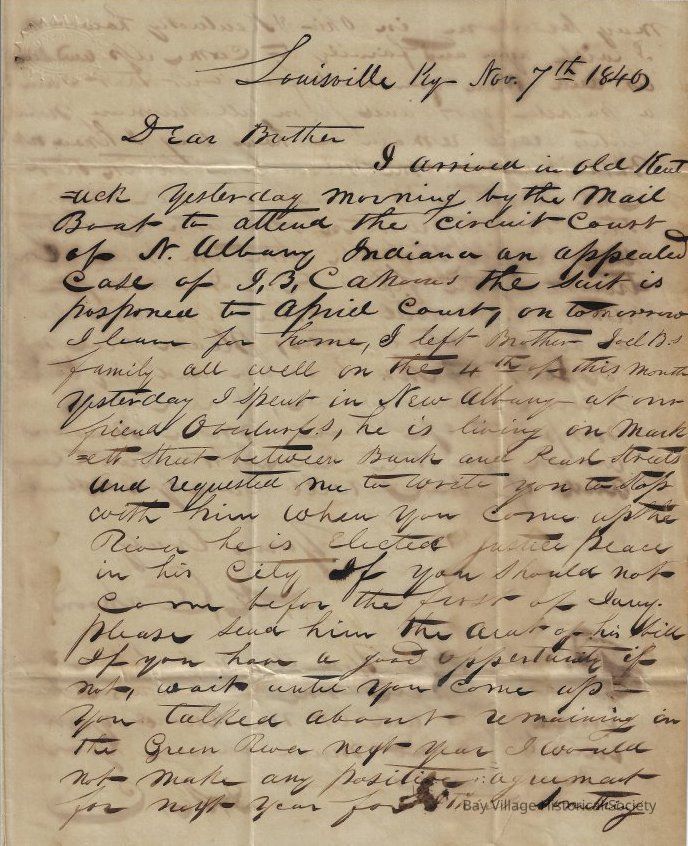 Louisville Ky Nov. 7th 1840
Dear Brother
I arrived in old Kent
=uck yesterday morning by the Mail
Boat to attend the circuit Court
of N. Albany Indiana an appealed
Case of J, B, Cahoons the suit is
posponed to April Court, on tomorrow
I leave for home, I left Brother Joel B.s
family all well on the 4th of this month
Yesterday I spent in New Albany at our
friend Overturfs, he is living on Mark
=ett Street between Bank and Pearl Streets
and requested me to write you to stop
with him when you come up the
River he is Elected Justice Peace
in his City If you should not
Come befor the first of Jany.
please send him the amt of his bill
If you have a good oppertunity if
not, wait until you come up =
You talked about remaining in
the Green River next year I would
not make any positive agreement
for next year for
Bay Village Historical Society